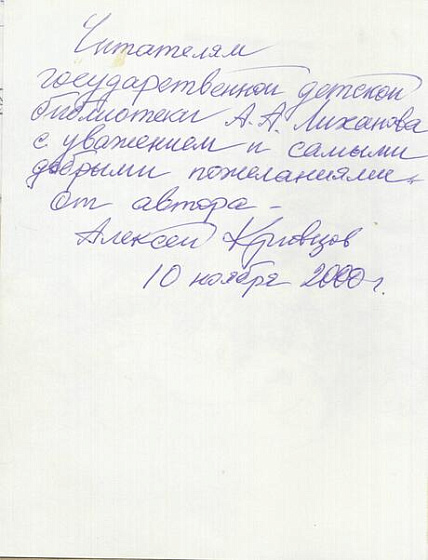 Читателям
государственной детской
библиотеки А.А. Лиханова
с уважением и самыми
добрыми пожеланиями
От автора –
Алексей Кривцов
10 ноября 2000 г.